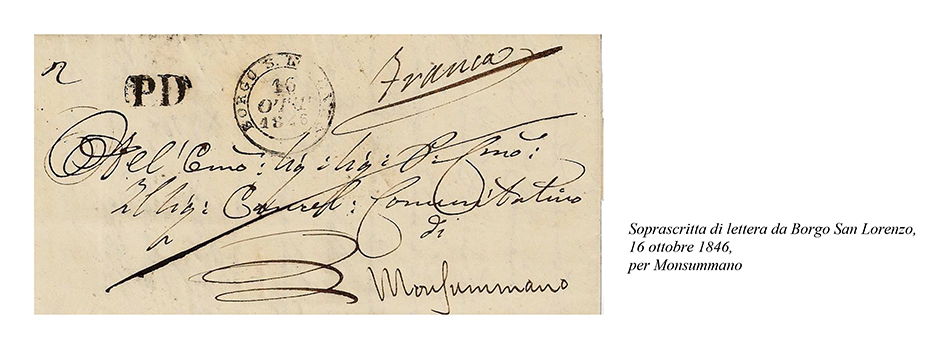 P.D.
BORGO S. L
16
OTT
1846
Franca
All'Ecmo: Sig: Sig: P: Cmo:
Il Sig: Cancel: Comunitativo
di
Monsummano
Soprascritta di lettera da Borgo San Lorenzo,
16 ottobre 1846,
per Monsummano